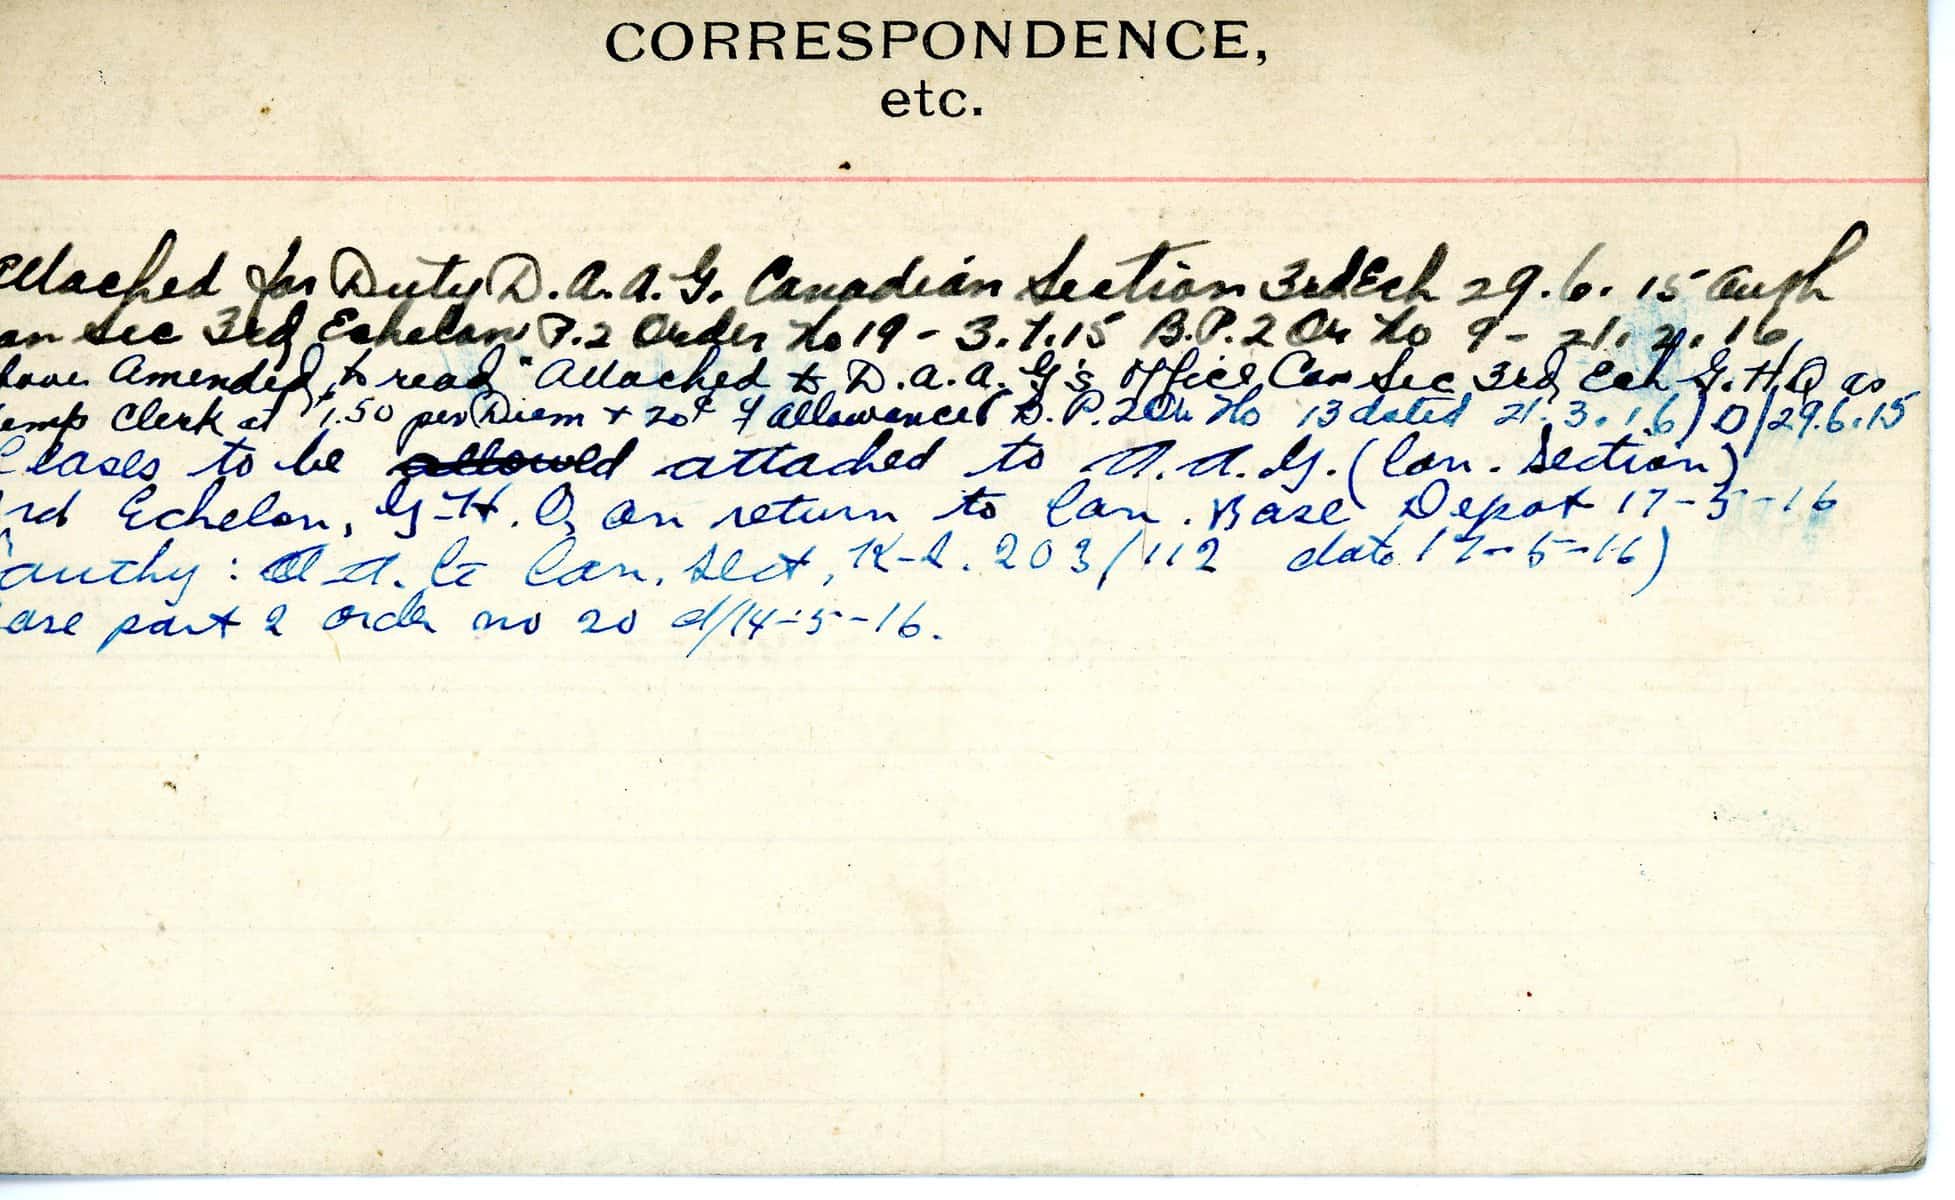 CORRESPONDENCE,
etc.
Attached for Duty D.A.A.G. Canadian Section 3rd Ech 29.6.15 Auth
an Sec 3rd Echelon P.2 Order No 19 - 3.7.15 B.P.2 Or No 9 - 21.2.16
bove Amended to read "Attached to D.A.A.G's Office Can Sec 3rd Ech G.H.Q as
emp Clerk at $1.50 per Diem + 20¢ f allowance B.P.2 Or No 13 dated 21.3.16) D/29.6.15
Ceases to be allowed attached to A.A.G. (Can. Section)
rd Echelon, G.H.Q on return to Can. Base Depot 17-5-16
authy: A.A.G Can. Sect, K-S. 203/112 date 17-5-16)
ase part 2 order no 20 d/14-5-16.